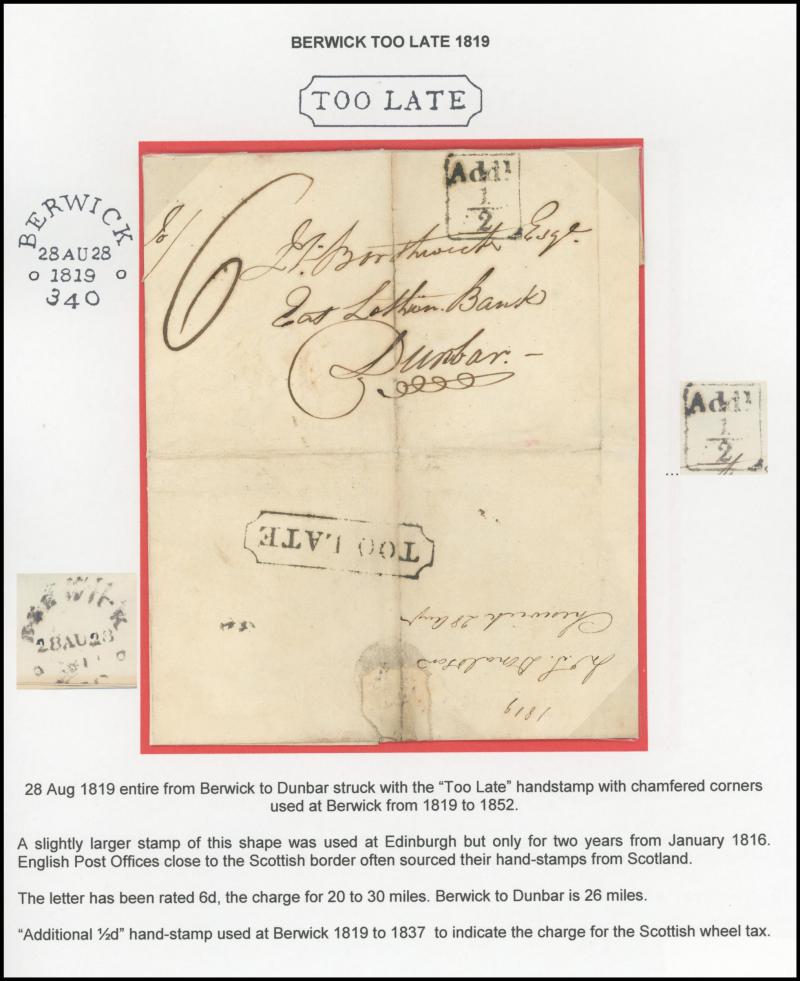 BERWICK TOO LATE 1819
TOO LATE
BERWICK
28AU28
1819
340
6
Addl
1/2
Borthwick Esqr.
East Lothian Bank
Dunbar. –
Addl
1/2
TOO LATE
BERWICK
28AU28
Cheswick 28 Aug
Donaldson
1819
28 Aug 1819 entire from Berwick to Dunbar struck with the “Too Late” handstamp with chamfered corners
used at Berwick from 1819 to 1852.
A slightly larger stamp of this shape was used at Edinburgh but only for two years from January 1816.
English Post Offices close to the Scottish border often sourced their hand-stamps from Scotland.
The letter has been rated 6d, the charge for 20 to 30 miles. Berwick to Dunbar is 26 miles.
“Additional ½d” hand-stamp used at Berwick 1819 to 1837 to indicate the charge for the Scottish wheel tax.